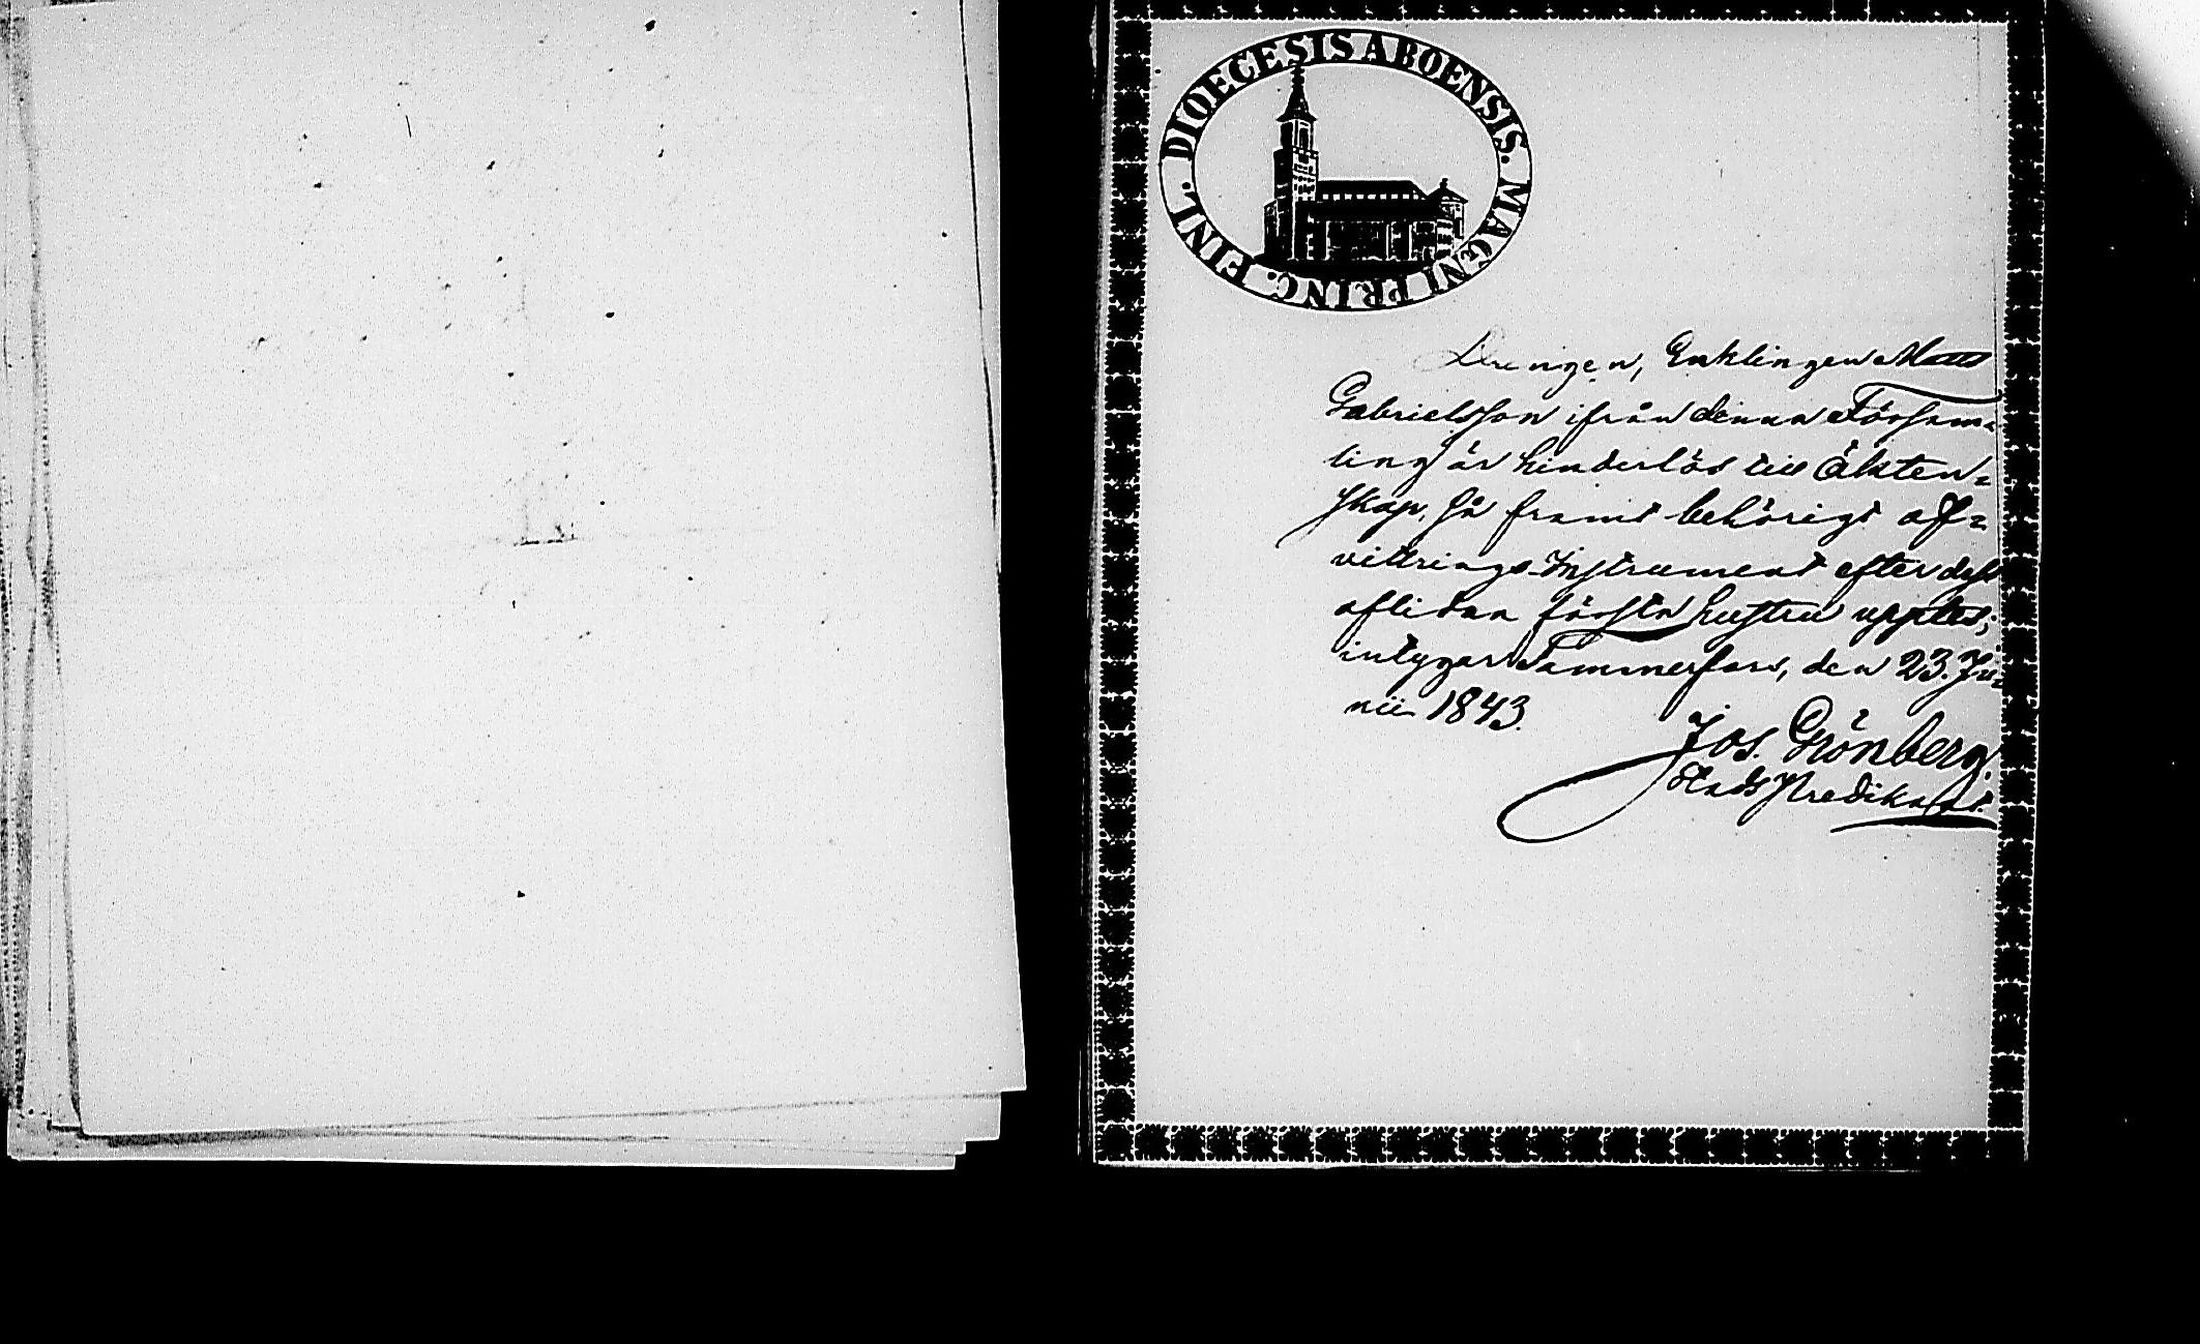 DIOECESIS ABOENSIS. MAGNI PRINC. FINL.
Drengen, Enklingen Matts
Gabrielsson ifrån denna Försam=
ling är hinderlös till Äkten=
skap, så framt behörigt af=
vittrings-Instrument efter dess
aflidna första hustru upptes;
intygar Tammerfors, den 23. Ju=
nii 1843.
Jos. Grönberg.
StadsPredikant.